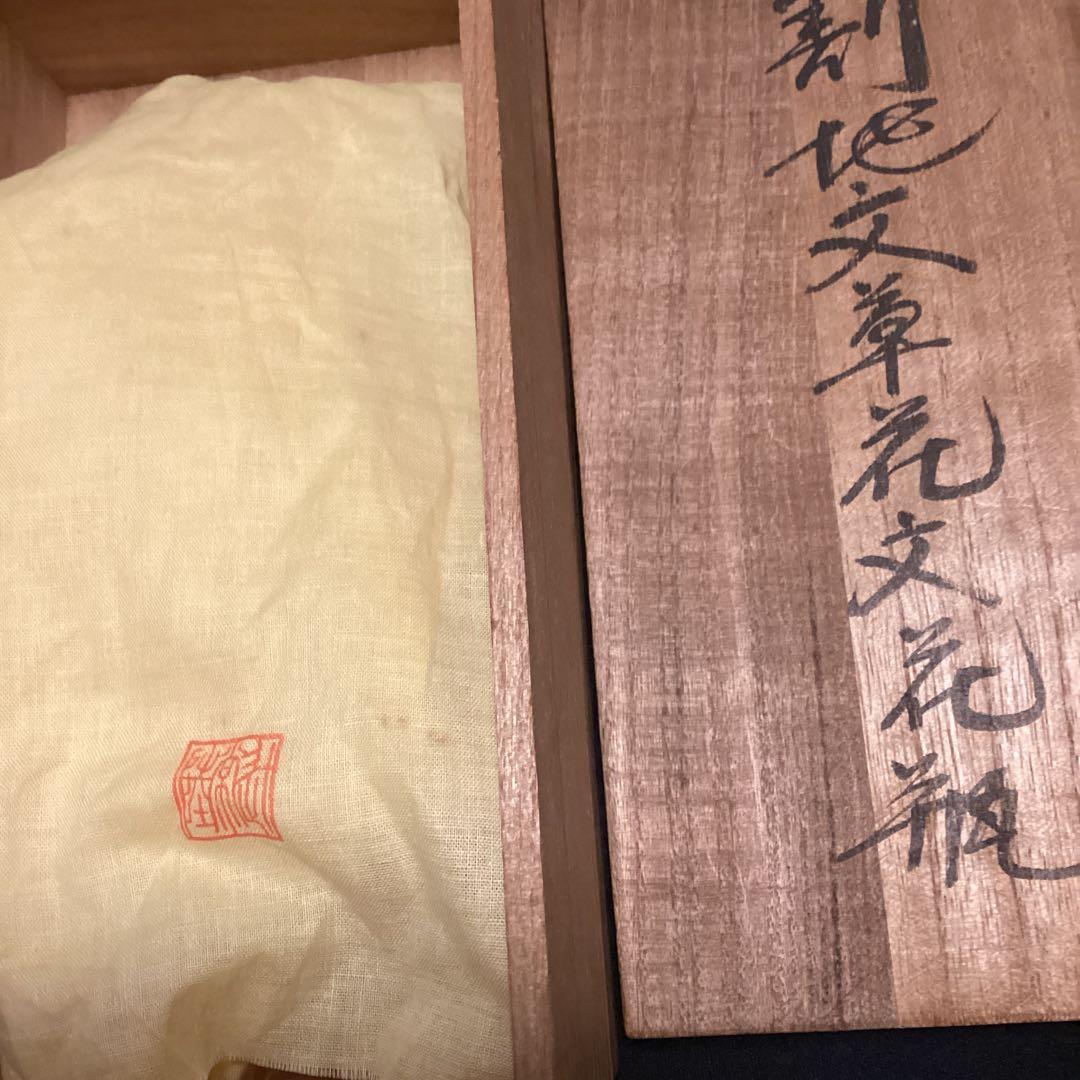 割地文草花文花瓶